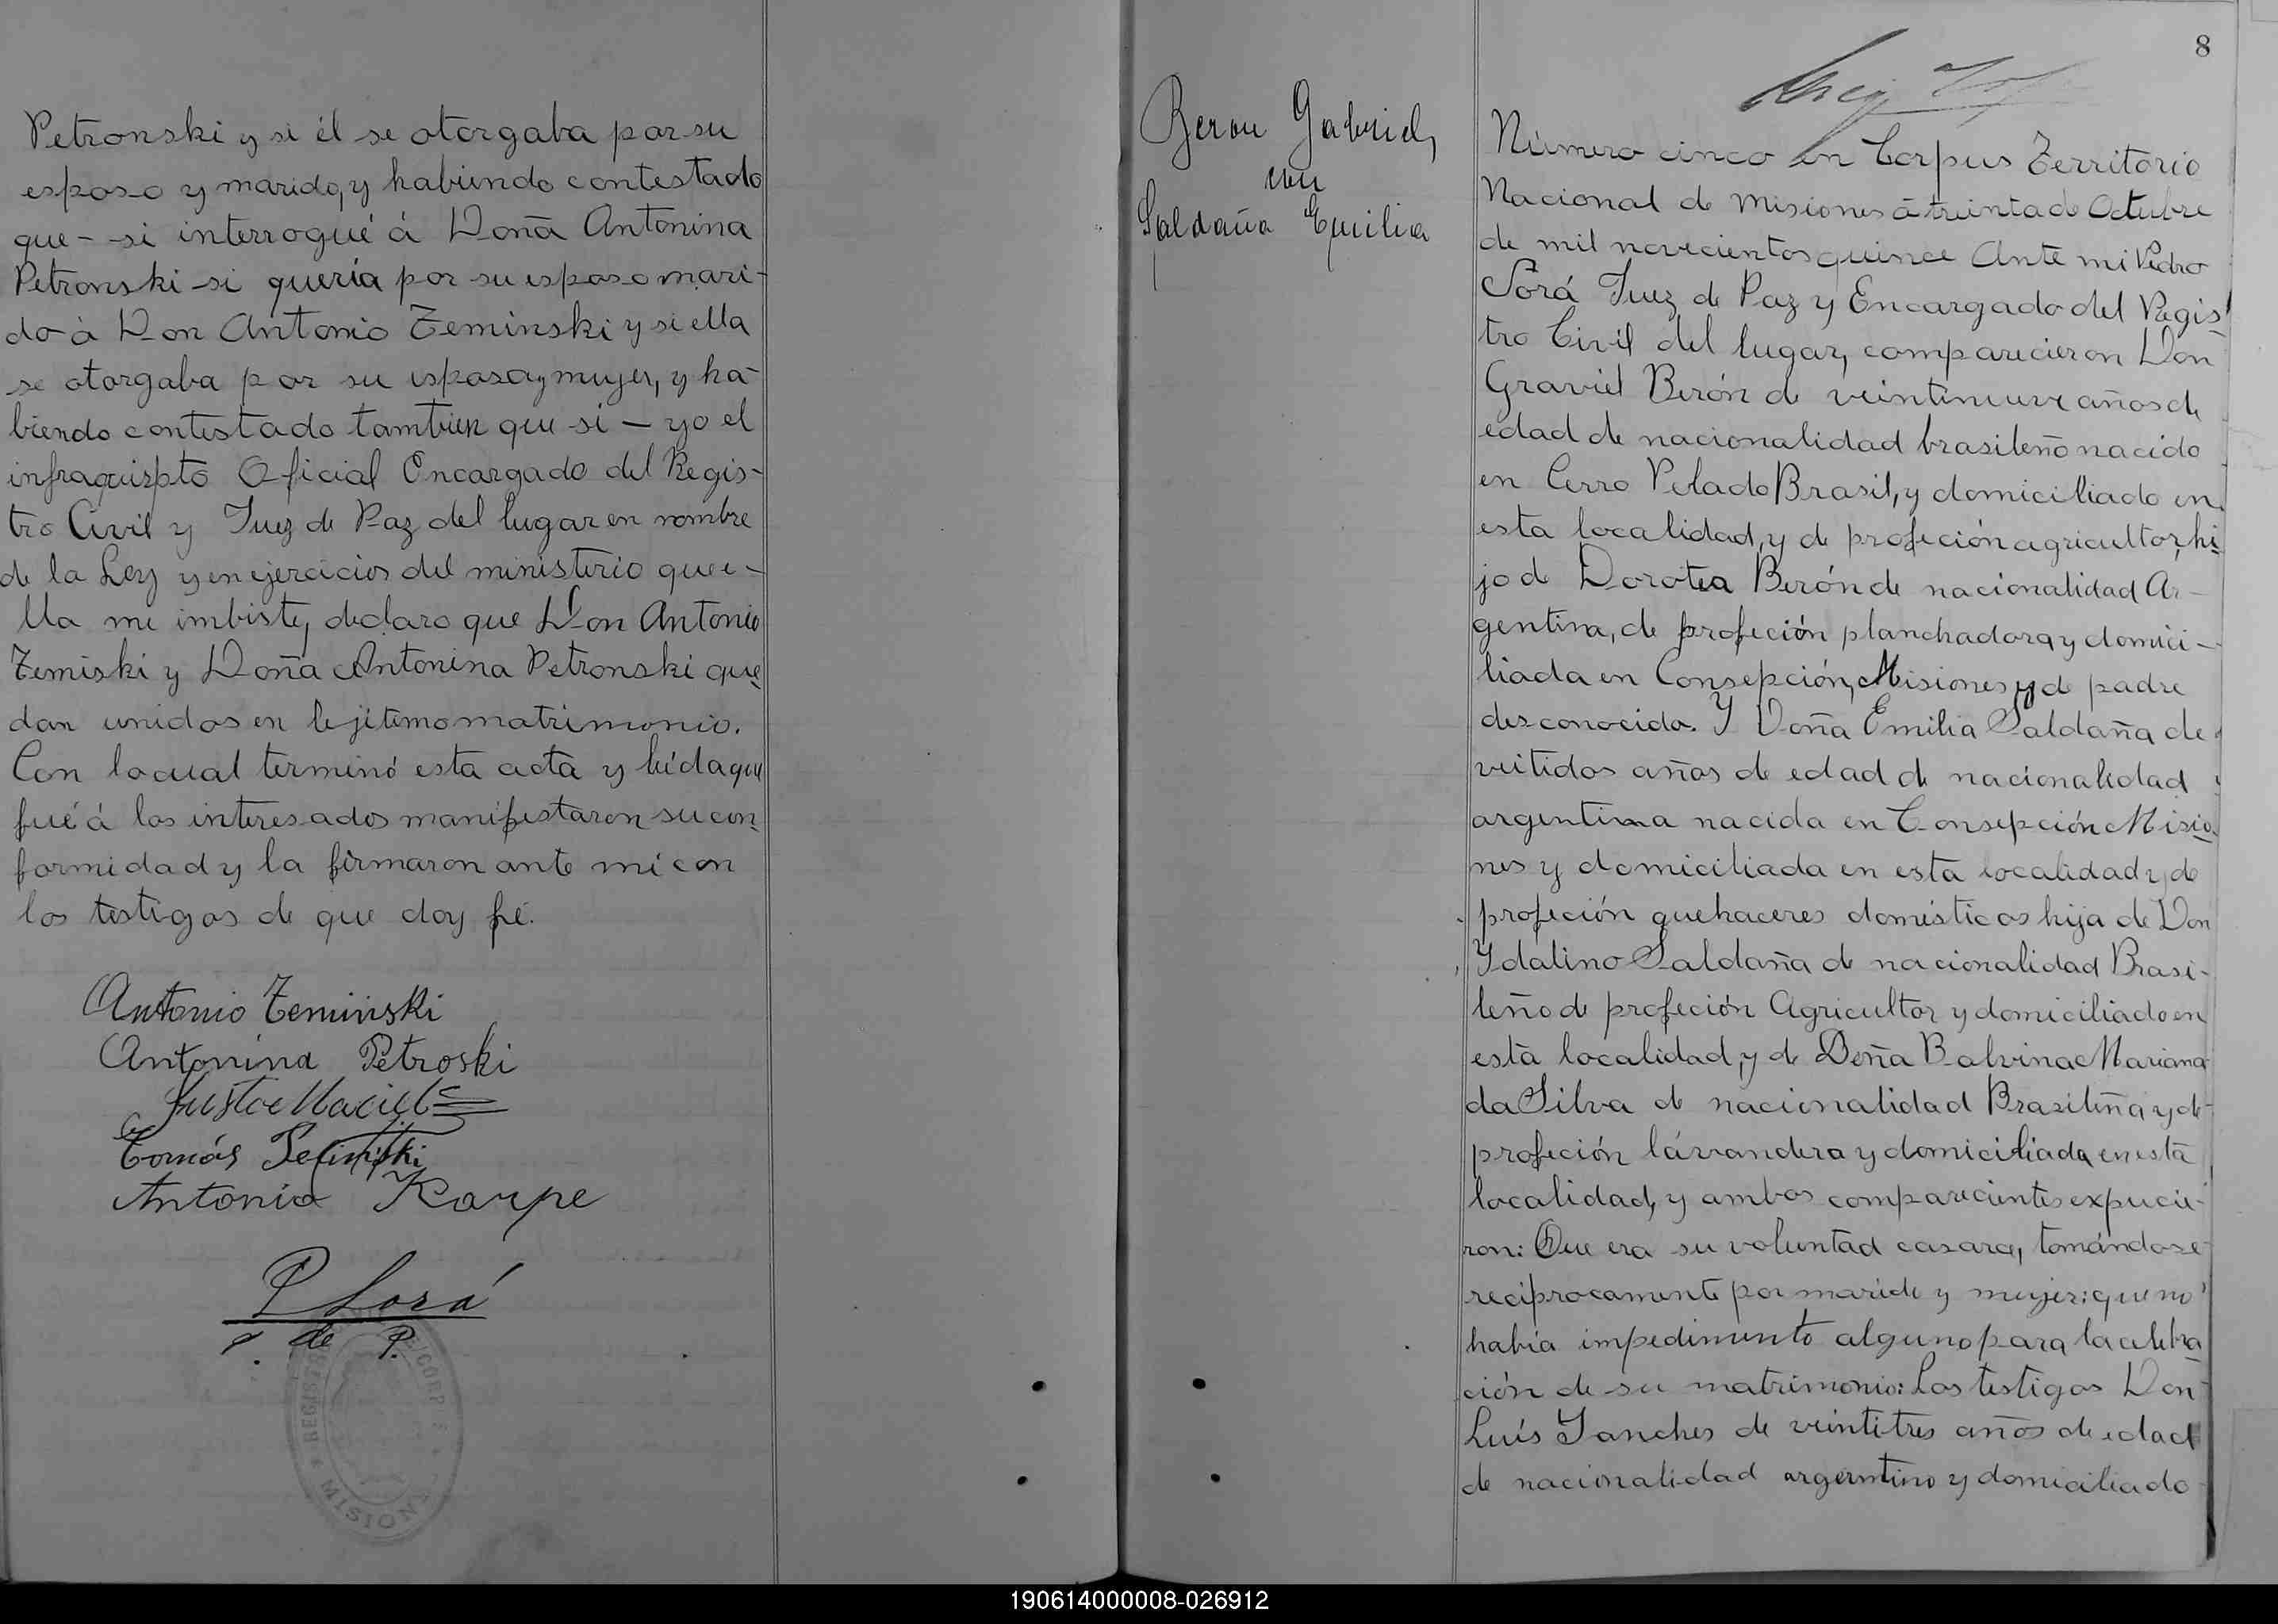 Petronski y si él se otorgaba por su
esposo y marido, y habiendo contestado
que - si interrogué á Doña Antonina
Petronski si quería por su esposo mari-
do á Don Antonio Zeminski y si ella
se otorgaba por su esposa y mujer, y ha-
biendo contestado tambien que si - yo el
Oficial Encargado del Regis-
tro Civil y Juez de Paz del lugar en nombre
de la Ley y en ejercicios del ministerio que e-
lla me imbiste, declaro que Don Antonio
Zemiski y Doña Antonina Petronski que-
dan unidos en lejítemo matrimonio.
Con lo cual terminó esta acta y leída que
fué á los interesados manifestaron su con-
formidad y la firmaron ante mí con
los testigos de que doy fé.
Antonio Zeminski
Antonina Petroski
Justo Maciel
Tomás
Antonio Karpe
P Sorá
J. de P.
REGISTRO
MISIONES
8
Beron Gabriel,
con
Saldaña Emilia
Número cinco en Corpus Territorio
Nacional de Misiones á treinta de Octubre
de mil novecientos quince Ante mi Pedro
Sorá Juez de Paz y Encargado del Regis-
tro Civil del lugar, comparecieron Don
Graviel Berón de veintinueve años de
edad de nacionalidad brasileño nacido
en Cerro Pelado Brasil, y domiciliado en
esta localidad, y de profeción agricultor, hi-
jo de Dorotea Berón de nacionalidad Ar-
gentina, de profeción planchadora y domici-
liada en Consepción, Misiones y de padre
desconocido. Y Doña Emilia Saldaña de
veitidos años de edad de nacionalidad
argentina nacida en Consepción Misio-
nes y domiciliada en esta localidad y de
profeción quehaceres domésticos hija de Don
Ydalino Saldaña de nacionalidad Brasi-
leño de profeción Agricultor y domiciliado en
esta localidad, y de Doña Balvina Mariana
da Silva de nacionalidad Brazileña y de
profeción lávandera y domiciliada en esta
localidad, y ambos comparecientes expucie-
ron: Que era su voluntad casarce, tomándose
reciprocamente por marido y mujer: que no
había impedimento alguno para la celebra
ción de su matrimonio: Los testigos Don
Luís Sanches de veintitres años de edad
de nacionalidad argentino y domiciliado
190614000008-026912